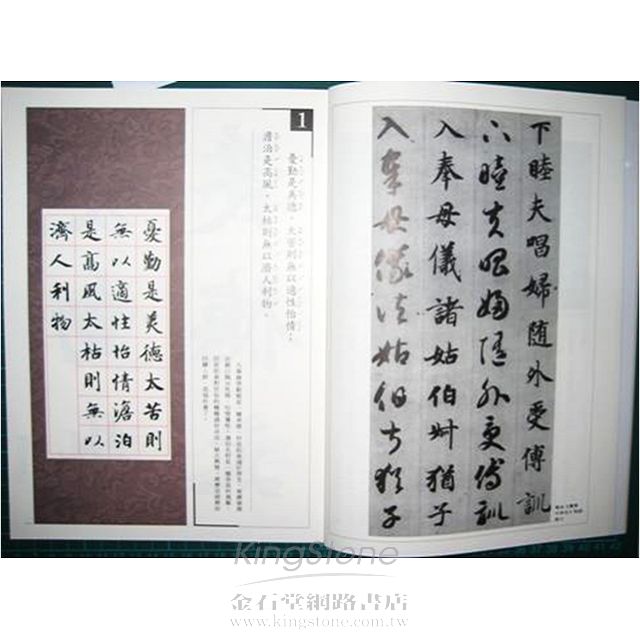 下睦夫唱婦随外受傅訓
下睦夫唱婦随外受傅訓
入奉母儀諸姑伯叔猶子
入奉母儀諸姑伯叔猶子
1
憂勤是美德，太苦則無以適性怡情；
澹泊是高風，太枯則無以濟人利物。
憂勤是美德太苦則
無以適性怡情澹泊
是高風太枯則無以
濟人利物
KingStone
金石堂網路書店
www.kingstone.com.tw